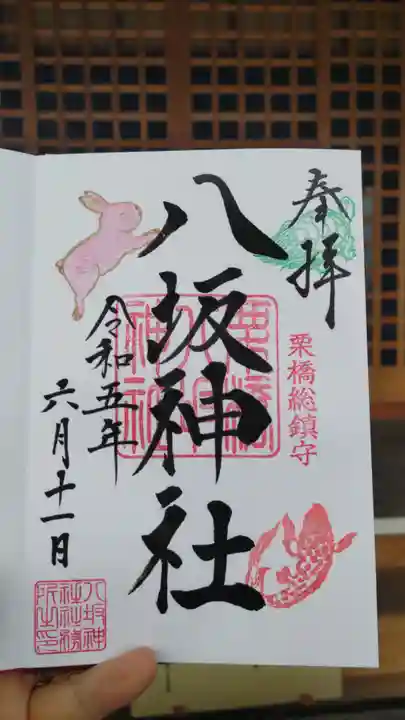 奉拝
栗橋総鎮守
八坂神社
令和五年
六月十一日
八坂神
社社務
所之印